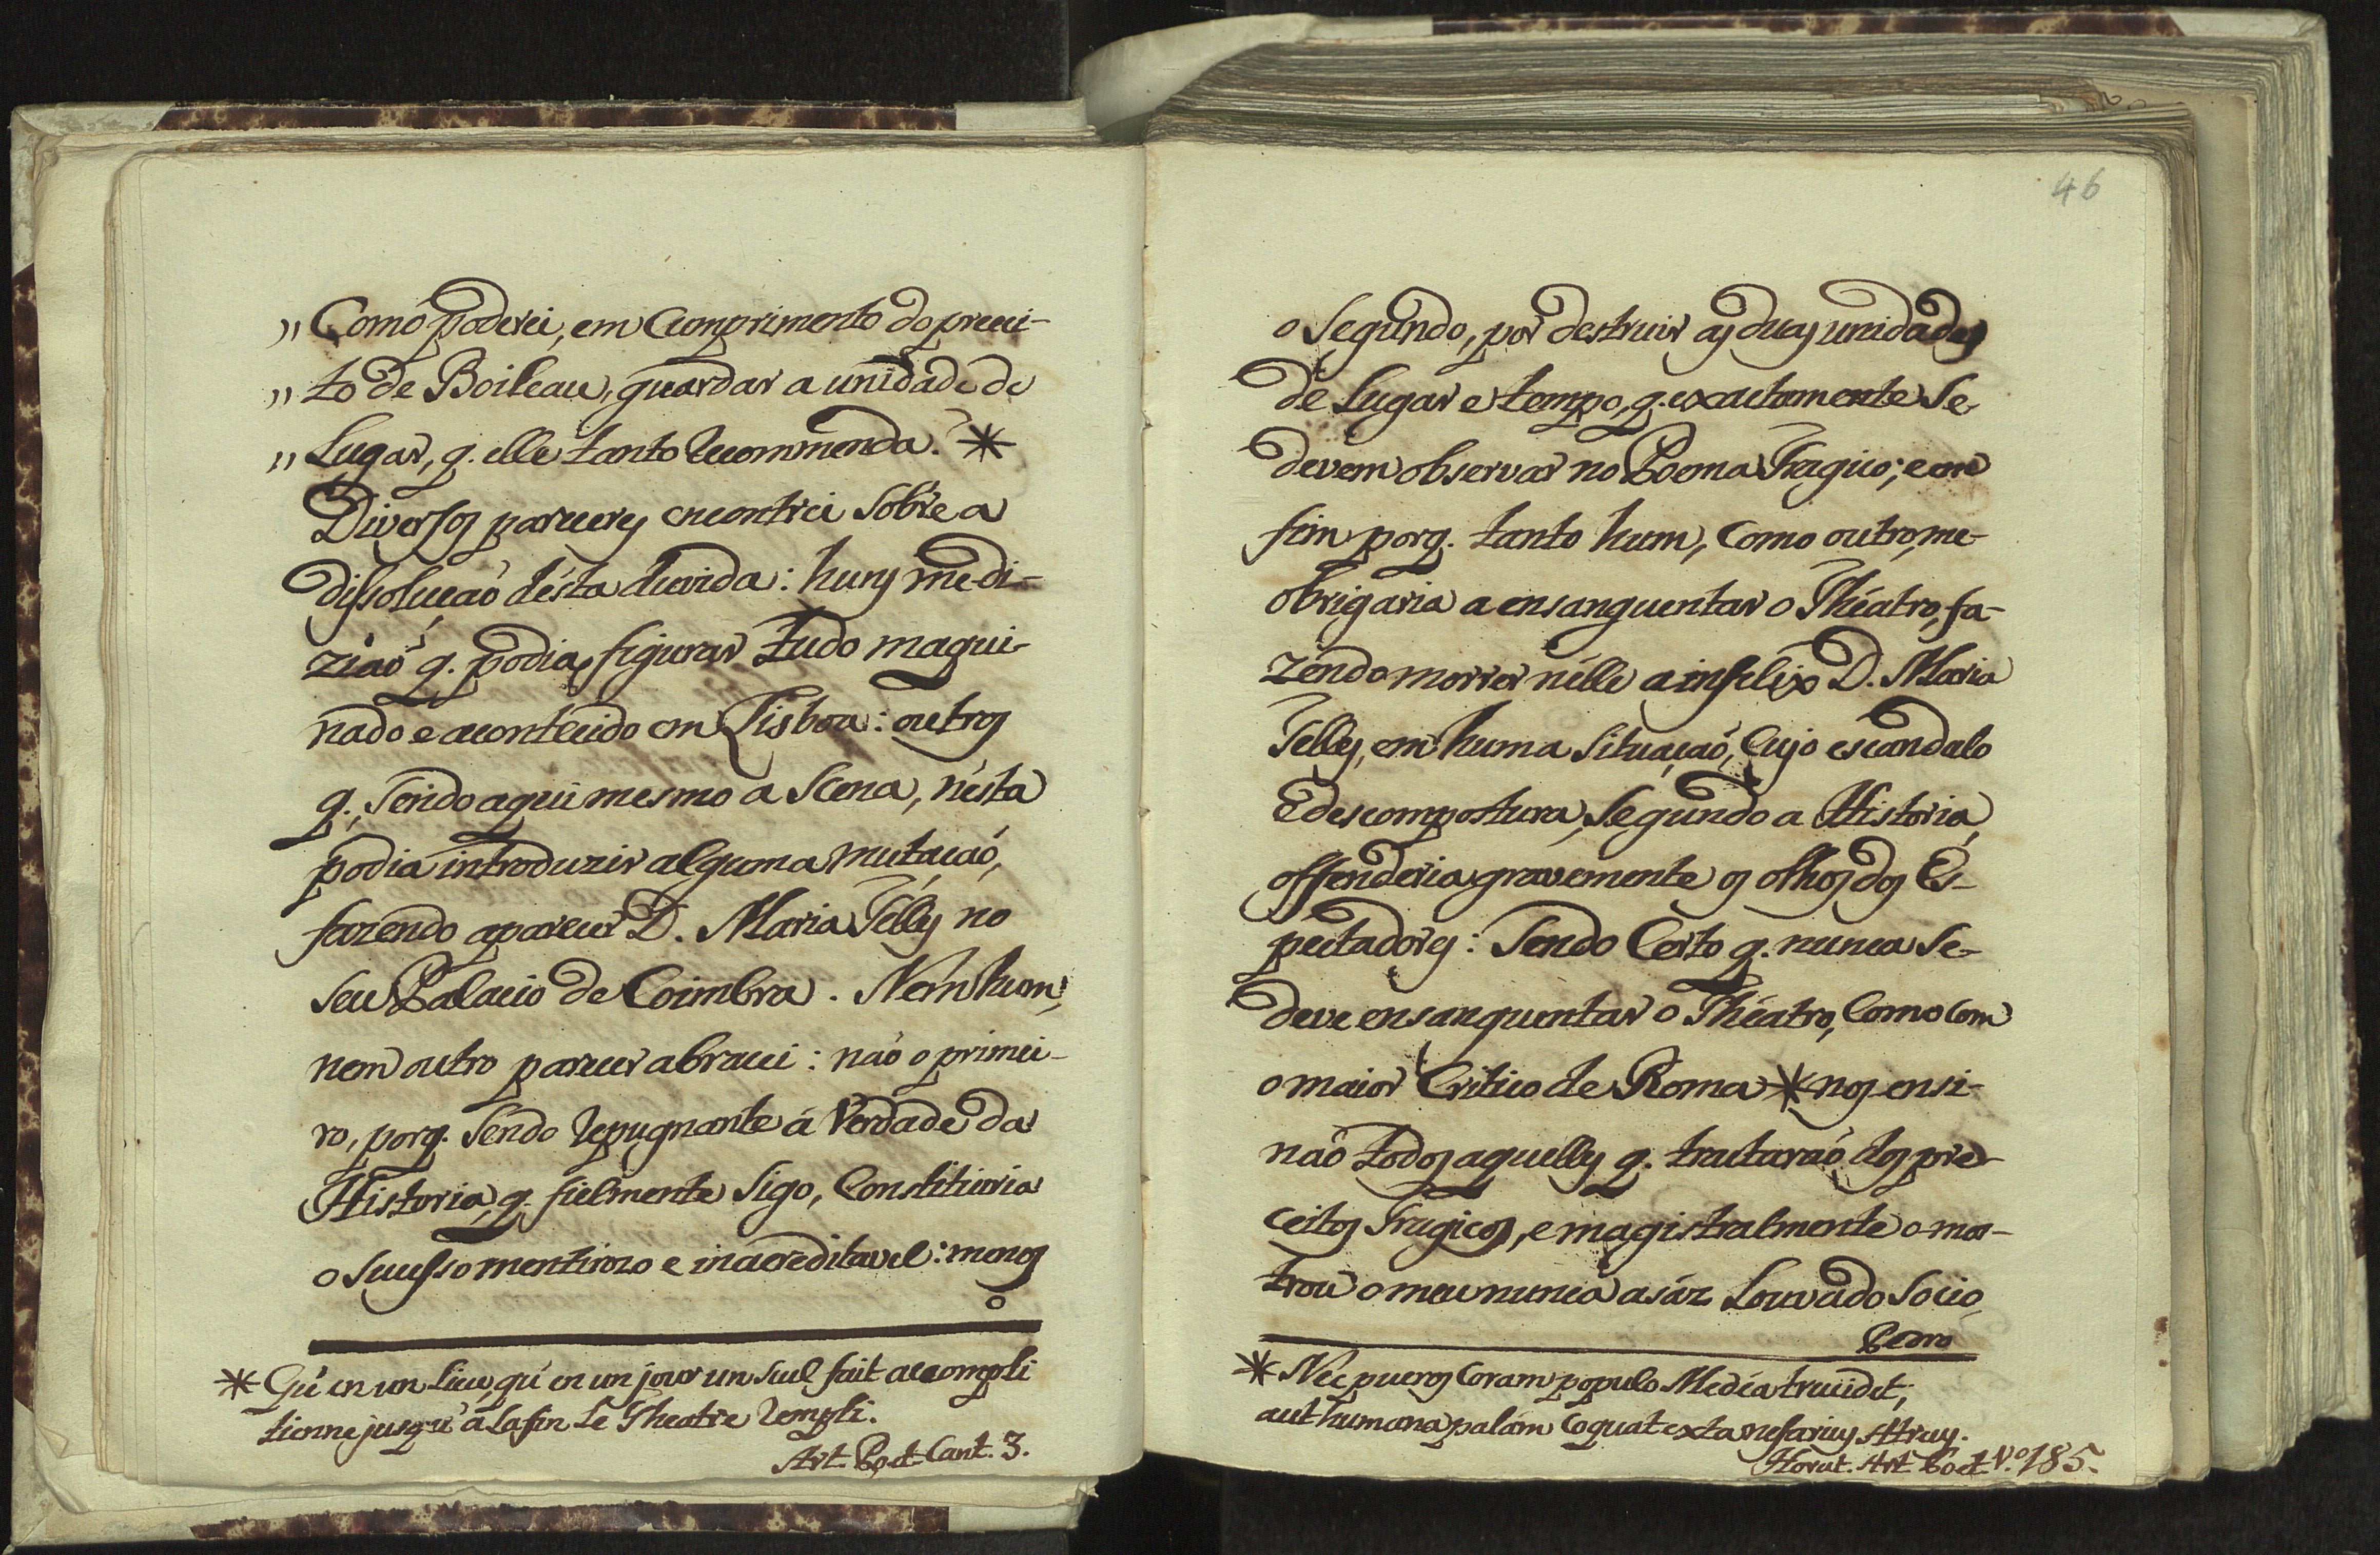 „ Como poderei, em Cumprimento do precei-
„ to de Boileau, guardar a unidade de
„ Lugar, q. elle tanto recommenda? *
Diversos pareceres encontrei sobre a
dissoluçaõ désta duvida: huns me di-
ziaõ q. podia figurar tudo maqui-
nado e acontecido em Lisboa: outros
q., sendo aqui mesmo a Scena, nésta
podia introduzir alguma mutaçaõ,
fazendo aparecer D. Maria Télles no
seu Palacio de Coimbra. Nem hum,
nem outro parecer abracei: naõ o primei-
ro, porq. sendo repugnante á Verdade da
Historia, q. fielmente sigo, Constituiria
o sucesso mentirozo e inacreditavel: menos
o
* Qu'en un Lieu, qu'en un jour un seul fait accompli
tienne jusqu'a la fin Le Theatre rempli.
Art. Poet. Cant. 3.
46
o segundo, por destruir as duas unidades
de Lugar e tempo, q. exactamente se
devem observar no Poema Tragico; e em
fim porq. tanto hum, Como outro, me
obrigaria a ensanguentar o Théatro, fa-
zendo morrer nélle a infelix D. Maria
Telles, em huma situaçaõ, Cujo escandalo
e descompostura, segundo a Historia,
offenderia gravemente os olhos dos Es-
pectadores: sendo Certo q. nunca se
deve ensanguentar o Théatro, Como com
o maior Critico de Roma * nos ensi-
naõ todos aquelles q. tractaraõ dos pre-
ceitos Tragicos, e magistralmente o mos-
trou o meu nunca asáz Louvado Socio,
Pedro
* Nec pueros Coram populo Medéa trucidet;
aut humana palám Coquat exta nefarius Atreus.
Horat. Art. Poet. V.º 185.